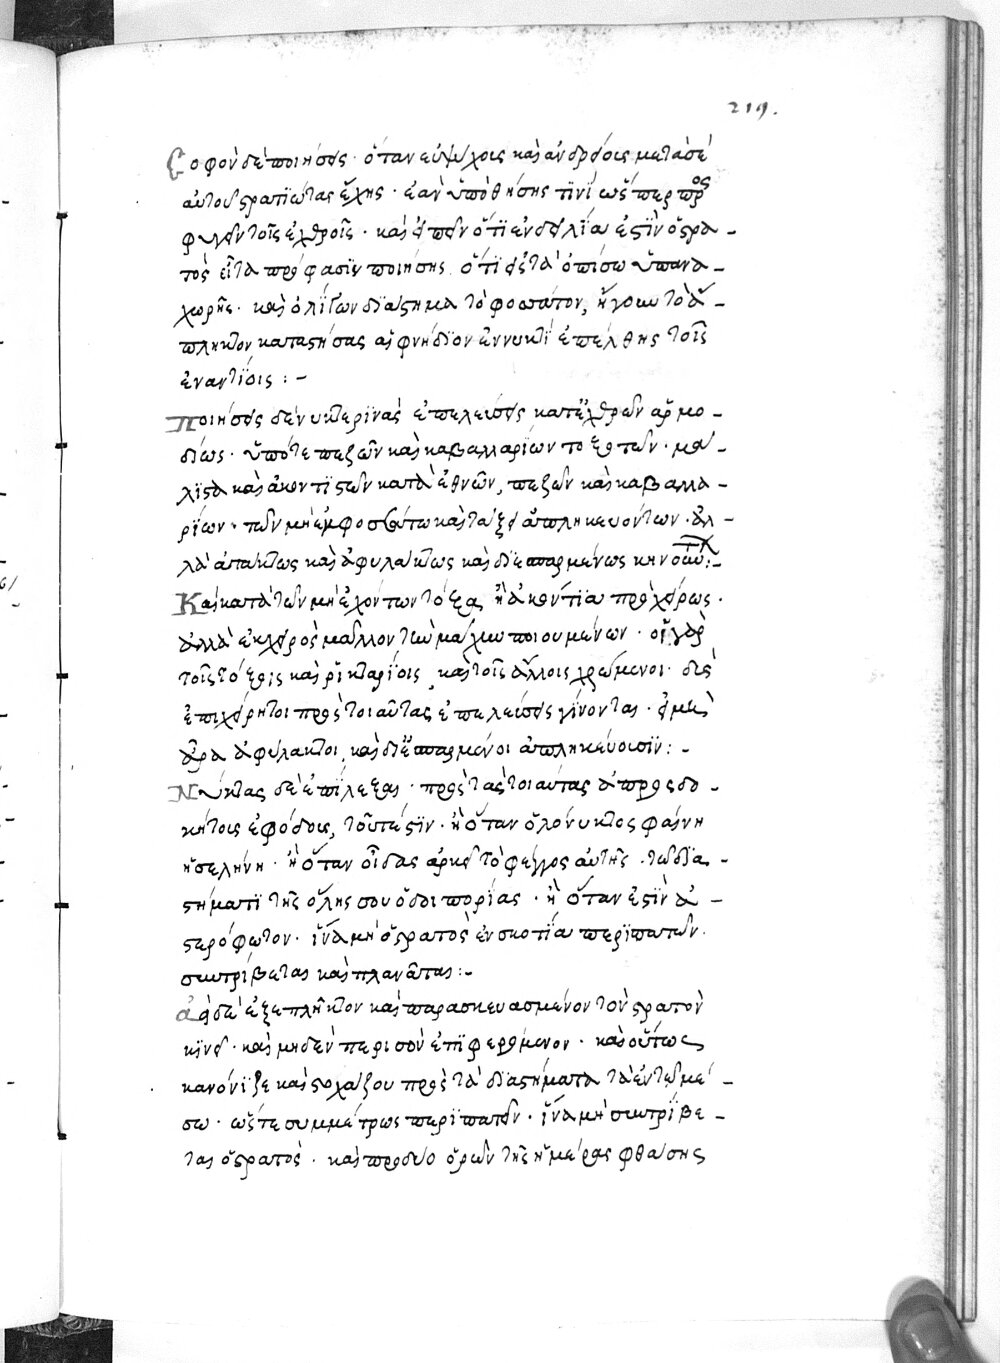 219.
Σοφὸν δὲ ποιήσεις· ὅταν εὐψύχοις καὶ ἀνδρείοις μετὰ σε
αυτοῦ στρατιώτας ἔχῃς· ἐὰν ὑποθήσῃς τινὶ ὥσπερ πρὸς
φυγεῖν τοῖς ἐχθροῖς· καὶ εἰπεῖν ὅτι ἐν δειλία ἐστὶν ὁ στρα-
τὸς εἶτα πρόφασιν ποιήσῃς ὅτι εἰς τὰ ὀπίσω ὑπανα-
χωρῆς· καὶ ὀλίγων διάστημα τὸ φοσάτον, ἤγουν τὸ ἄ-
πληκτον καταστήσας αἰφνήδιον ἐν νυκτὶ ἐπέλθῃς τοῖς
ἐναντίοις :-
Ποιήσεις δὲ νυκτερινὰς ἐπελεύσεις κατ' ἐχθρῶν ἁρμο-
δίως· ὑπό τε πεζῶν καὶ καβαλλαρίων τοξοτῶν· μά-
λιστα καὶ ἀκοντιστῶν κατὰ ἐθνῶν, πεζῶν καὶ καβαλλα-
ρίων· τῶν μὴ ἐμφοσσάτω καὶ τάξει ἀπληκευόντων· ἀλ-
λὰ ἀτάκτως καὶ ἀφυλάκτως καὶ διεσπαρμένως σκηνούντων :-
Καὶ κατὰ τῶν μὴ ἐχόντων τόξα, ἢ ἀκόντια προχείρως·
ἀλλὰ ἐκ χειρὸς μᾶλλον τὴν μάχην ποιουμένων· οἱ γὰρ
τοῖς τόξοις καὶ ῥικταρίοις, καὶ τοῖς ἄλλοις χρώμενοι· δυσ
επιχείρητοι πρὸς τοιαύτας ἐπελεύσεις γίνονται· εἰ μὴ
ἄρα ἀφύλακτοι, καὶ διεσπαρμένοι ἀπληκεύουσιν :-
Νύκτας δὲ ἐπίλεξαι· πρὸς τὰς τοιαύτας ἀπροσδο-
κήτοις ἐφόδοις, τουτέστιν· ἢ ὅταν ὁλόνυκτος φαίνη
ἡ σελήνη· ἢ ὅταν οἶδας ἀρκεῖ τὸ φέγγος αὐτῆς· τῶ δια-
στήματι τῆς ὅλης σου ὁδοιπορίας· ἢ ὅταν ἐστὶν ἀ-
στερόφωτον· ἵνα μὴ ὁ στρατὸς ἐν σκοτία περιπατῶν·
συντρίβεται καὶ πλανᾶται :-
Ἀεὶ δὲ ἐξέπληκτον καὶ παρασκευασμένον τὸν στρατὸν
κίνει· καὶ μηδὲν περισὸν ἐπιφερόμενον· καὶ οὕτως
κανόνιζε καὶ στοχάζου πρὸς τὰ διαστήματα τὰ ἐν τῶ μέ-
σω· ὥστε συμμέτρως περιπατεῖν· ἵνα μὴ συντρίβε-
ται ὁ στρατὸς· καὶ προδύο ὁρῶν τῆς ἡμέρας φθάσης